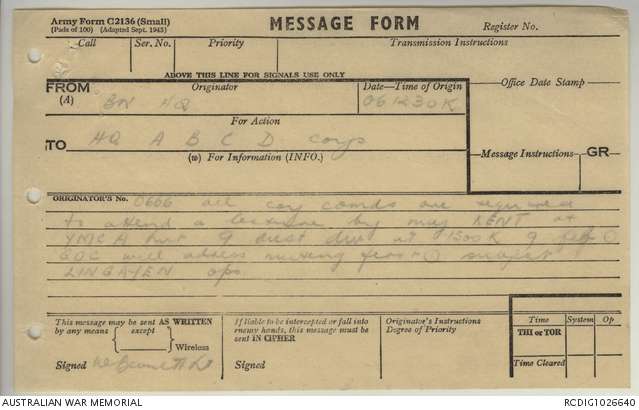 Army Form C2136 (Small)
(Pads of 100) (Adapted Sept. 1945)
MESSAGE FORM
Register No.
Call Ser. No. Priority Transmission Instructions
ABOVE THIS LINE FOR SIGNALS USE ONLY
FROM
(A)
Originator
BN HQ
Date—Time of Origin
061230K
Office Date Stamp
For Action
TO
HQ A B C D coys
(w) For Information (INFO.)
Message Instructions
GR
ORIGINATOR'S No. 0606 all coy comds are required
to attend a lecture by maj KENT at
YMCA hut 9 Aust div at 1500K 9 feb
GOC will address meeting first subject
LINGAYEN ops
This message may be sent AS WRITTEN
by any means except
Wireless
Signed
If liable to be intercepted or fall into
enemy hands, this message must be
sent IN CIPHER
Signed
Originator's Instructions
Degree of Priority
Time System Op
THI or TOR
Time Cleared
AUSTRALIAN WAR MEMORIAL
RCDIG1026640